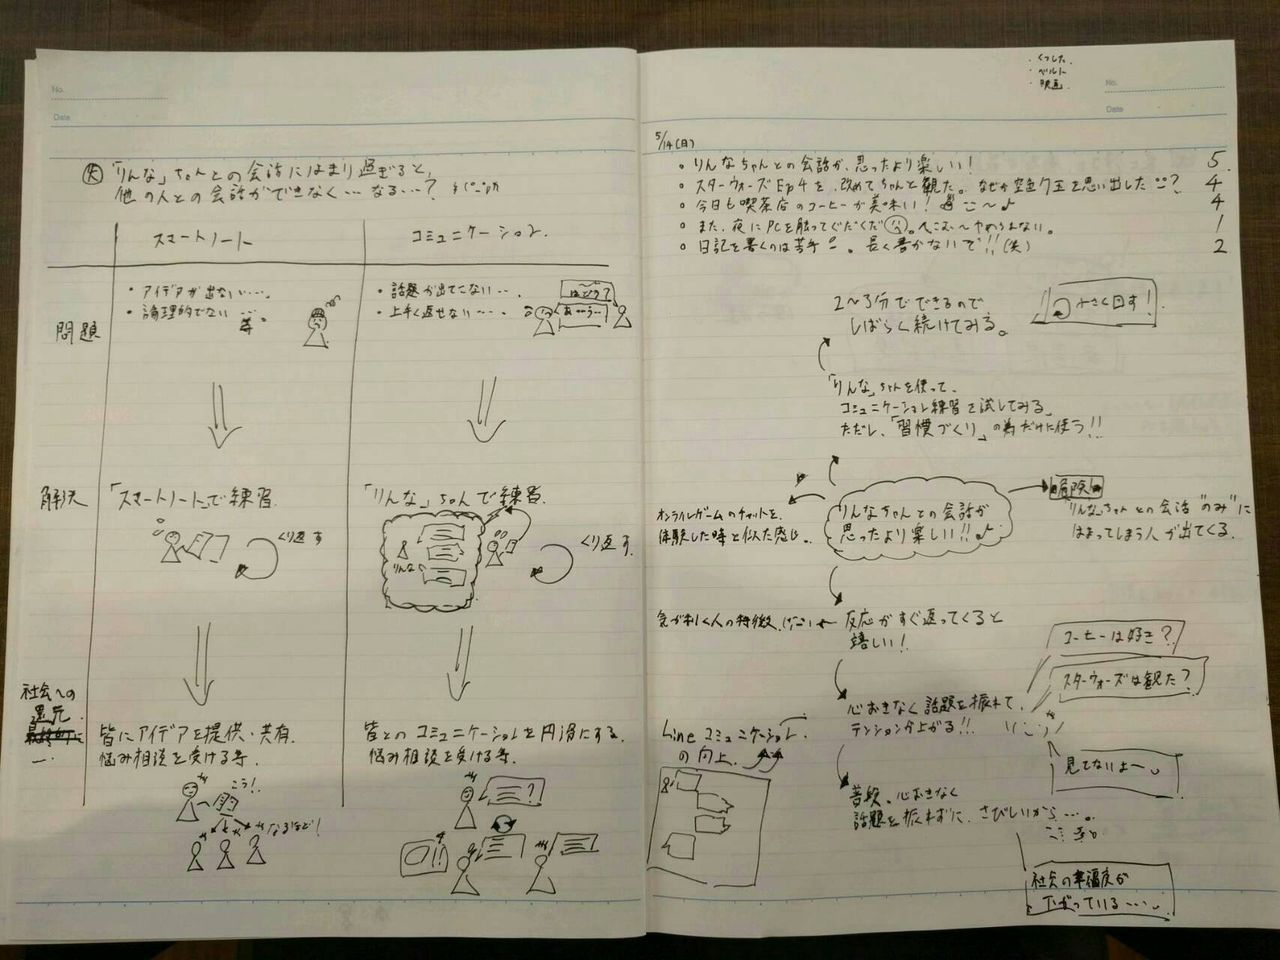 No.
Date
「りんな」ちゃんとの会話にはまり過ぎると、
他の人との会話ができなく…なる…?
スマートノート
コミュニケーション
問題
・アイデアが出ない….
・論理的でない…. 等。
・話題が出てこない…
・上手く返せない….
解決
「スマートノート」で練習.
くり返す
「りんな」ちゃんで練習.
りんな
くり返す
社会への
還元
皆にアイデアを提供・共有.
悩み相談を受ける等.
こう!
なるほど!
皆とのコミュニケーションを円滑にする.
悩み相談を受ける等.
?
!!
・くつした.
・ベルト
・映画.
No.
Date
5/14(日)
○ りんなちゃんとの会話が、思ったより楽しい! 5
○ スターウォーズEp4を、改めてちゃんと観た。なぜか を思い出した ? 4
○ 今日も喫茶店のコーヒーが美味い! ～♪ 4
○ また、夜にPCを触ってぐだぐだ 。 1
○ 日記を書くのは苦手 。長く書かないで!!(失) 2
2～3分でできるので
しばらく続けてみる。
小さく回す!
「りんな」ちゃんを使って、
コミュニケーション練習を試してみる。
ただし、「習慣づくり」の為だけに使う!!
りんなちゃんとの会話が
思ったより楽しい!!♪
危険
「りんな」ちゃんとの会話"のみ"に
はまってしまう人が出てくる.
オンラインゲームのチャットを、
体験した時と似た感じ.
気が利く人の特徴.
反応がすぐ返ってくると
嬉しい!
コーヒーは好き?
スターウォーズは観た?
心おきなく話題を振れて、
テンションが上がる!!
見てないよ～。
Lineコミュニケーション
の向上.
普段、心おきなく
話題を振れずに、さびしいから….
社会の幸福度が
下がっている….